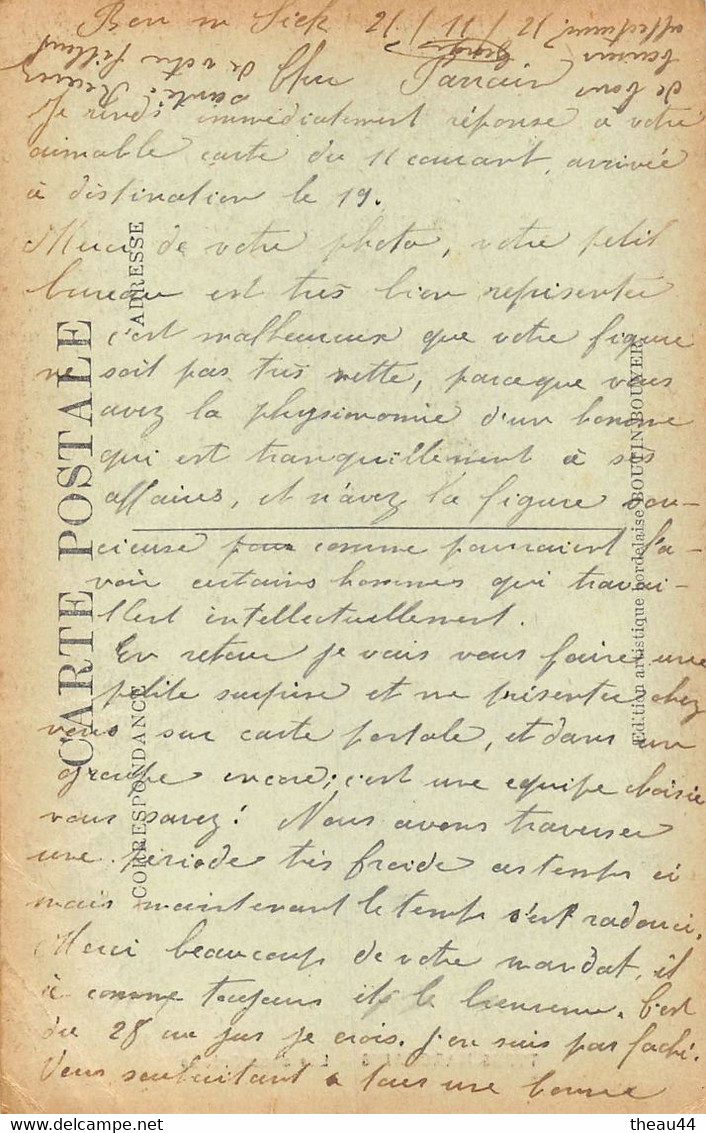 Ben m Sick 21/11/21
Cher Parrain
Je rends immédiatement réponse à votre
aimable carte du 11 courant, arrivée
à distination le 19.
Merci de votre photo, votre petit
bureau est très bien représentée
c'est malheureux que votre figure
ne soit pas très nette, parceque vous
avez la physionomie d'un homme
qui est tranquillement à ses
affaires, et n'avez la figure sou-
cieuse comme pourraient l'a-
voir certains hommes qui travai-
llent intellectuellement.
En retour je vais vous faire une
petite surprise et me présenter chez
vous sur carte postale, et dans un
groupe encore; c'est une equipe choisie
vous savez! Nous avons traverser
une période très froide ces temps ci
mais maintenant le temps s'est radouci.
Merci beaucoup de votre mandat, il
à comme toujours été le bienvenu. C'est
du 28 au jus je crois. J'en suis pas faché.
Vous souhaitant à tous une bonne
santé. Recevez
de votre filleul
de bons
baisers
affectueux
Georges
CARTE POSTALE
CORRESPONDANCE
ADRESSE
Edition artistique bordelaise BOUTIN-BOUYER
theau44